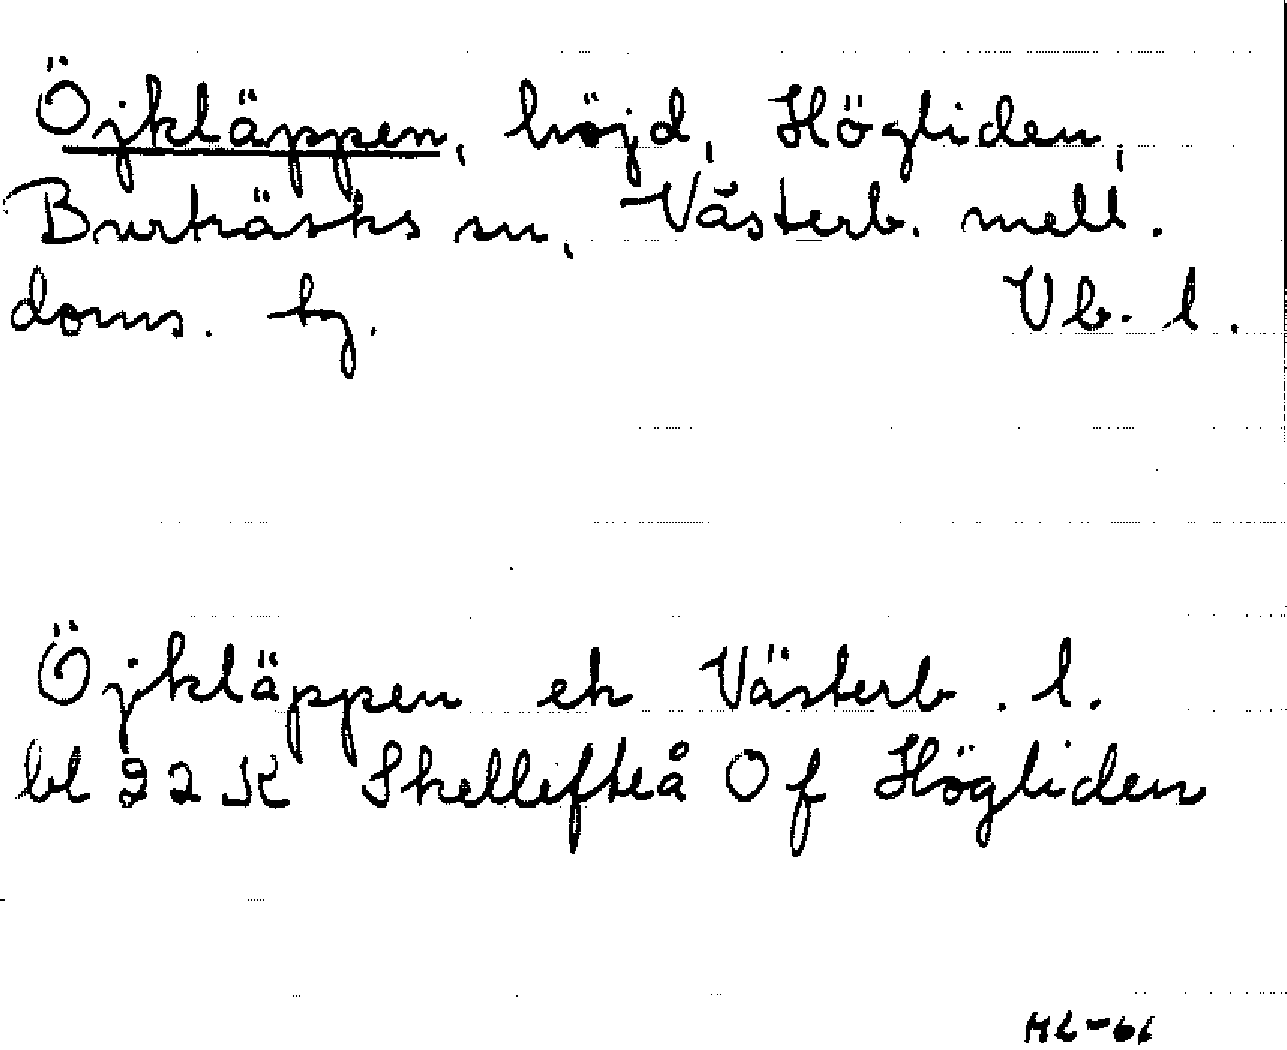 Öjkläppen, höjd, Högliden,
Burträsks sn, Västerb. mell.
doms. tg. Vb. l.
Öjkläppen ek Västerb. l.
bl 22 K Skellefteå Of Högliden
HL-61